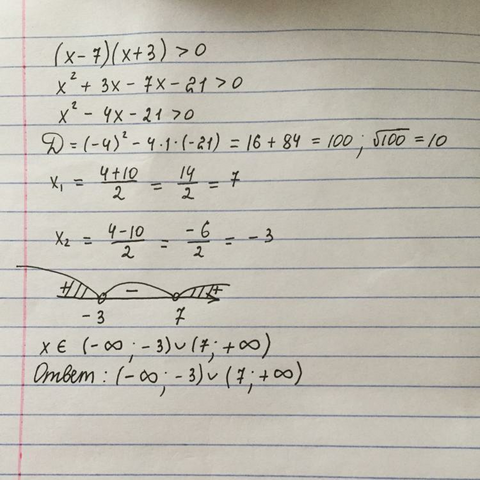 (x-7)(x+3)>0
x²+3x-7x-21>0
x²-4x-21>0
D=(-4)²-4·1·(-21)=16+84=100; √100=10
x₁ = (4+10)/2 = 14/2 = 7
x₂ = (4-10)/2 = -6/2 = -3
+ - +
-3 7
x ∈ (-∞;-3)∪(7;+∞)
Ответ: (-∞;-3)∪(7;+∞)